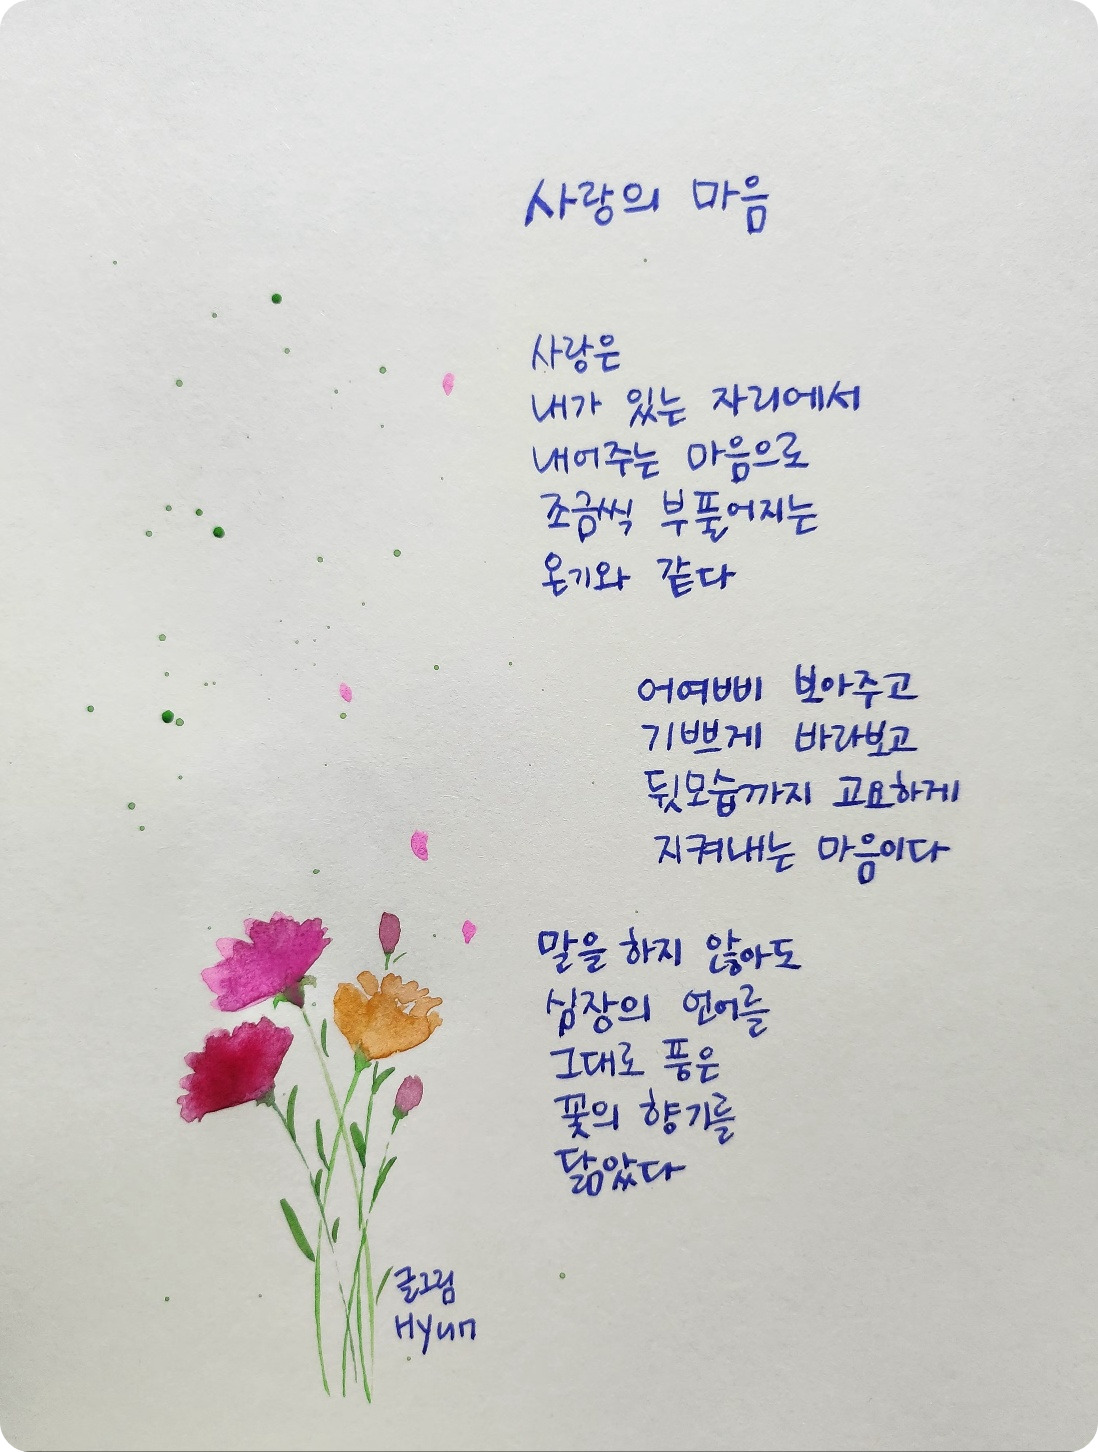 사랑의 마음
사랑은
내가 있는 자리에서
내어주는 마음으로
조금씩 부풀어지는
온기와 같다
어여삐 보아주고
기쁘게 바라보고
뒷모습까지 고요하게
지켜내는 마음이다
말을 하지 않아도
심장의 언어를
그대로 품은
꽃의 향기를
닮았다
글그림
Hyun